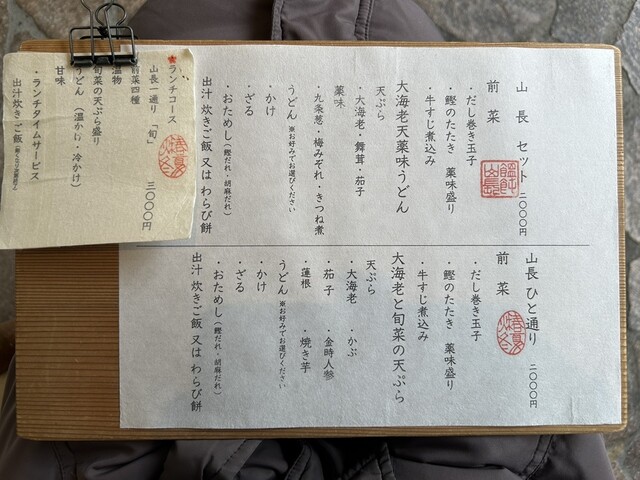 山長 セット 二〇〇〇円
前菜
・だし巻き玉子
・鰹のたたき 薬味盛り
・牛すじ煮込み
大海老天薬味うどん
天ぷら
・大海老・舞茸・茄子
薬味
・九条葱・梅みぞれ・きつね煮
うどん ※お好みでお選びください
・かけ
・ざる
・おためし(鰹だれ・胡麻だれ)
出汁炊きご飯 又は わらび餅
山長 ひと通り 二〇〇〇円
前菜
・だし巻き玉子
・鰹のたたき 薬味盛り
・牛すじ煮込み
大海老と旬菜の天ぷら
天ぷら
・大海老 ・かぶ
・茄子 ・金時人参
・蓮根 ・焼き芋
うどん ※お好みでお選びください
・かけ
・ざる
・おためし(鰹だれ・胡麻だれ)
出汁炊きご飯 又は わらび餅
★ランチコース
山長一通り「旬」 三〇〇〇円
前菜四種
温物
旬菜の天ぷら盛り
うどん(温かけ・冷かけ)
甘味
・ランチタイムサービス
出汁炊きご飯